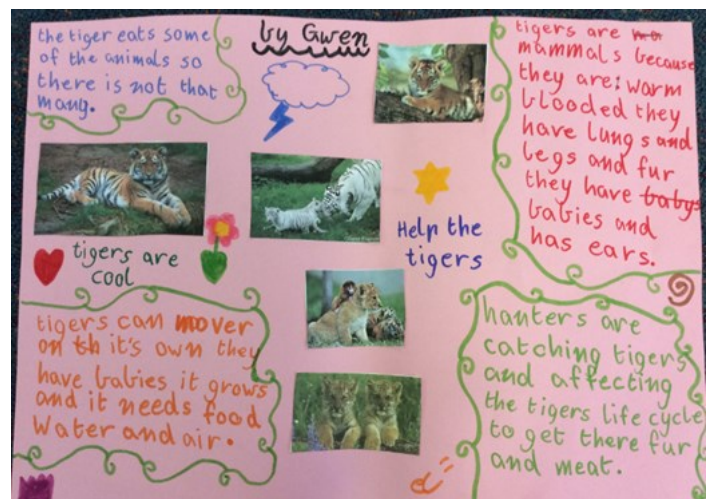 the tiger eats some
of the animals so
there is not that
many.
by Gwen
tigers are
mammals because
they are: warm
blooded they
have lungs and
legs and fur
they have babys
babies and
has ears.
tigers are
cool
Help the
tigers
tigers can mover
on th it's own they
have babies it grows
and it needs food
Water and air.
hanters are
catching tigers
and affecting
the tigers life cycle
to get there fur
and meat.